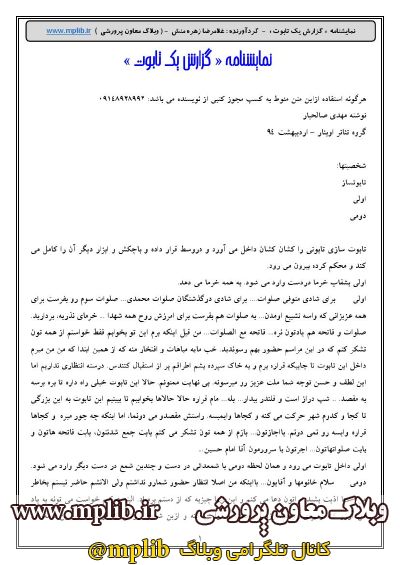 نمایشنامه « گزارش یک تابوت » - گردآورنده : غلامرضا زهره منش - ( وبلاگ معاون پرورشی ) www.mplib.ir
نمایشنامه « گزارش یک تابوت »
هرگونه استفاده ازاین متن منوط به کسب مجوز کتبی از نویسنده می باشد: ۰۹۱۴۸۹۲۸۹۹۴
نوشته مهدی صالحیار
گروه تئاتر اوینار – اردیبهشت ۹۴
شخصیتها:
تابوتساز
اولی
دومی
تابوت سازی تابوتی را کشان کشان داخل می آورد و دروسط قرار داده و باچکش و ابزار دیگر آن را کامل می
کند و محکم کرده بیرون می رود.
اولی بشقاب خرما دردست وارد می شود. به همه خرما می دهد.
اولی برای شادی متوفی صلوات... برای شادی درگذشتگان صلوات محمدی... صلوات سوم رو بفرست برای
همه عزیزانی که واسه تشییع اومدن... یه صلوات هم بفرست برای امرزش روح همه شهدا .. خرمای نذریه، بردارید.
صلوات و فاتحه هم یادتون نره... فاتحه مع الصلوات... من قبل اینکه برم این تو بخوابم فقط خواستم از همه تون
تشکر کنم که در این مراسم حضور بهم رسوندید. خب مایه مباهات و افتخار منه که از همین ابتدا که من میرم
داخل این تابوت تا جاییکه قراره برم و به خاک سپرده بشم اطرافم پر از استقبال کنندس. درسته انتظاری نداریم اما
این لطف و حسن توجه شما ملت عزیز رو میرسونه. بی نهایت ممنونم. حالا این تابوت خیلی راه داره تا بره برسه
به مقصد... شب دراز است و قلندر بیدار... بله... مام قراره حالا حالاها بخوابیم تا ببینیم این تابوت به این بزرگی
تا کجا و کدوم شهر حرکت می کنه و کجاها وایمیسه. راستش مقصدو می دونما، اما اینکه چه جور میره و کجاها
قراره وایسه رو نمی دونم. بااجازتون... بازم از همه تون تشکر می کنم بابت جمع شدنتون، بابت فاتحه هاتون و
بابت صلواتهاتون... اجرتون با سرورمون آقا امام حسین..
اولی داخل تابوت می رود و همان لحظه دومی با شمعدانی در دست و چندین شمع در دست دیگر وارد می شود.
دومی سلام خانومها و آقایون... بااینکه من اصلا انتظار حضور شمارو نداشتم ولی الانشم حاضر نیستم بخاطر
وبلاگ معاون پرورشی www.mplib.ir
کانال تلگرامی وبلاگ @mplib